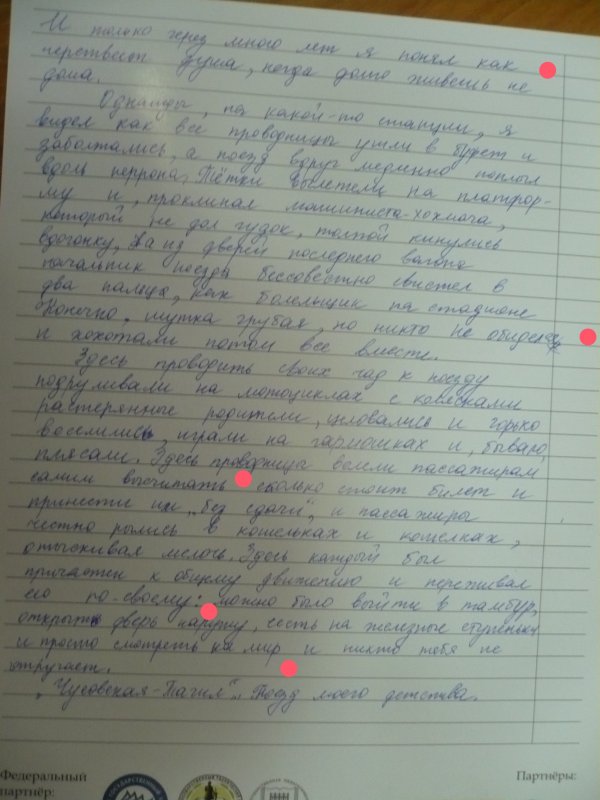 И только через много лет я понял как
черствеет душа, когда долго живёшь не
дома.
Однажды, на какой-то станции, я
видел как все проводницы ушли в буфет и
заболтались, а поезд вдруг медленно поплыл
вдоль перрона. Тётки вылетели на платфор-
му и, проклиная машиниста-хохмача,
который не дал гудок, толпой кинулись
вдогонку, а из дверей последнего вагона
начальник поезда бессовестно свистел в
два пальца, как болельщик на стадионе
Конечно, шутка грубая, но никто не обиделся
и хохотали потом все вместе.
Здесь проводить своих чад к поезду
подруливали на мотоциклах с колясками
растерянные родители, целовались и горько
веселились, играли на гармошках и, бывало,
плясали. Здесь проводницы велели пассажирам
самим высчитать сколько стоит билет и
принести им „без сдачи", и пассажиры
честно рылись в кошельках и кошелках,
отыскивая мелочь. Здесь каждый был
причастен к общему движению и переживал
его по-своему: можно было выйти в тамбур,
открыть дверь наружу, сесть на железные ступеньки
и просто смотреть на мир и никто тебя не
отругает.
„Чусовская-Тагил". Поезд моего детства.
Федеральный
партнёр:
Партнёры: